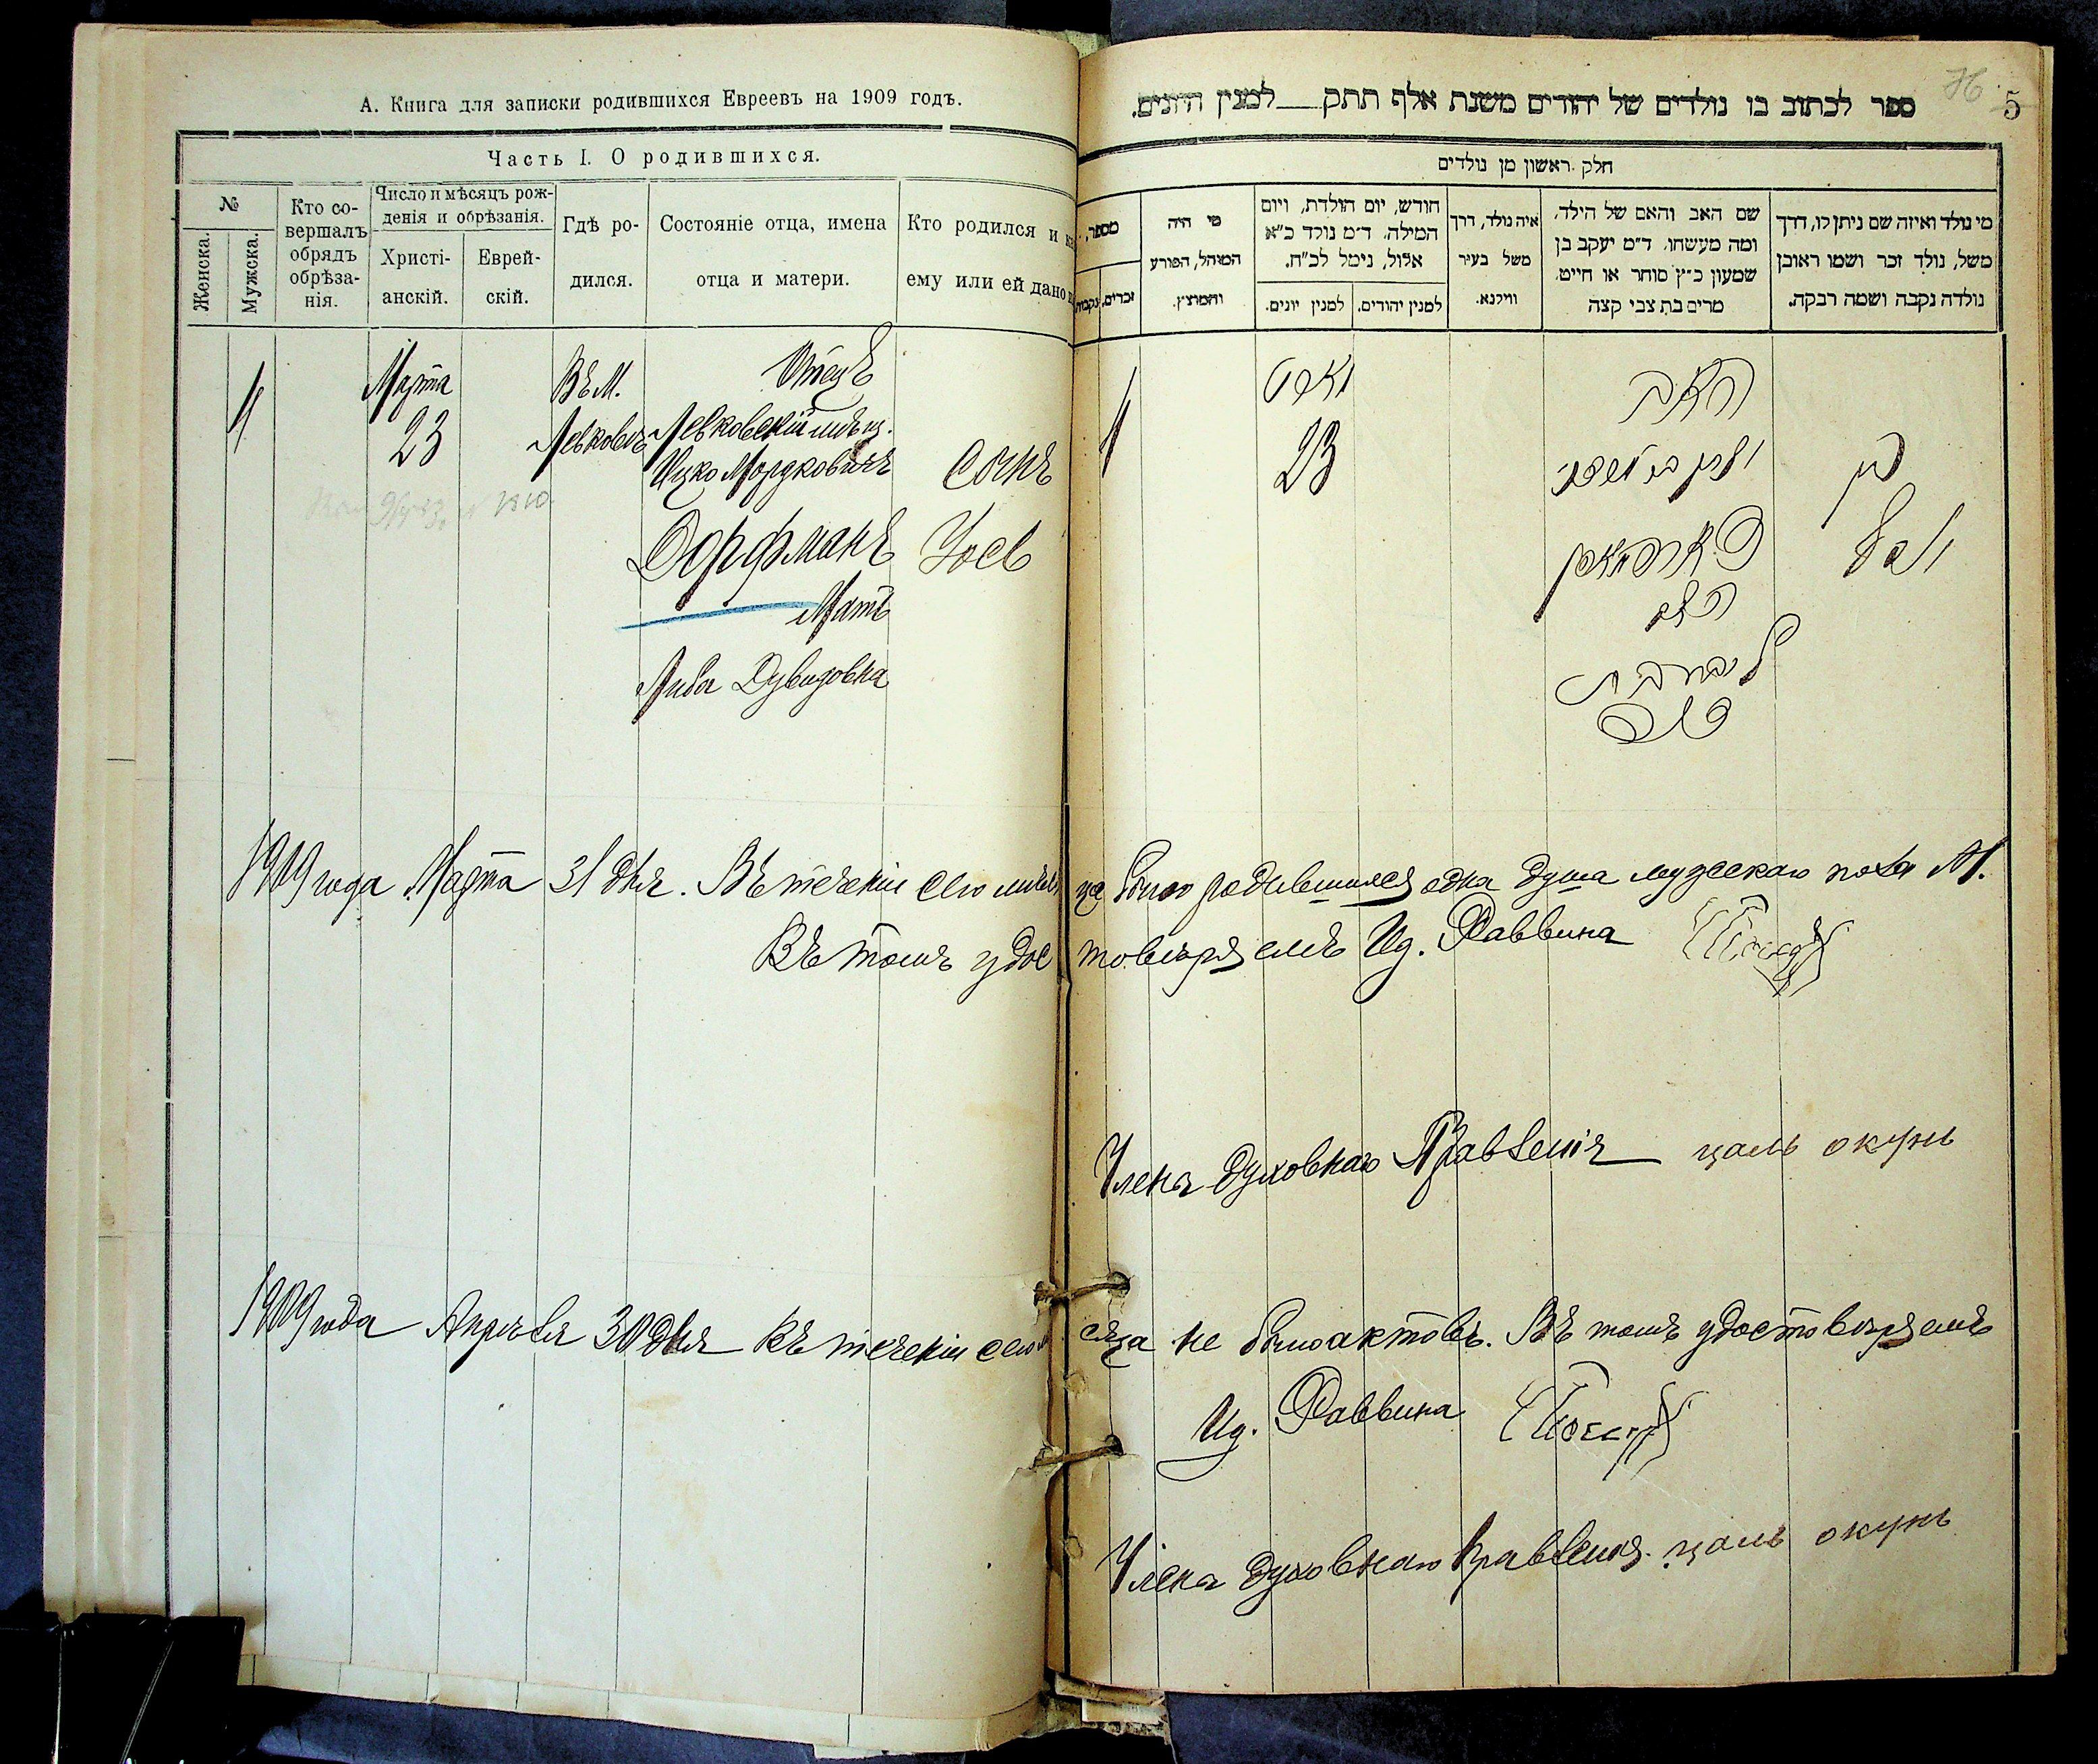 А. Книга для записки родившихся Евреевъ на 1909 годъ.
Часть I. О родившихся.
№
Женска.
Мужска.
Кто со-
вершалъ
обрядъ
обрѣза-
нія.
Число и мѣсяцъ рож-
денія и обрѣзанія.
Христі-
анскій.
Еврей-
скій.
Гдѣ ро-
дился.
Состояніе отца, имена
отца и матери.
Кто родился и
ему или ей дано
1
Марта
23
Въ М.
Левковъ
Отецъ
Левковскій мѣщ.
Ицко Мордковичъ
Дорфманъ
Мать
Либа Дувидовна
Сынъ
Іось
76
5
ספר לכתוב בו נולדים של יהודים משנת אלף תתק למנין היונים.
חלק ראשון מן נולדים
מספר,
זכרים.
נקבות
מי היה
המוהל, הפורע
והמוצץ.
חודש, יום הולדת, ויום
המילה. ד״מ נולד כ״א
אלול, נימל לכ״ח.
למנין יונים.
למנין יהודים.
איה נולד, דרך
משל בעיר
ווילנא.
שם האב והאם של הילד,
ומה מעשהו. ד״מ יעקב בן
שמעון כ״ץ סוחר או חייט.
מרים בת צבי קצה
מי נולד ואיזה שם ניתן לו, דרך
משל, נולד זכר ושמו ראובן
נולדה נקבה ושמה רבקה.
1
23
האב
דארפמאן
האם
בן
1909 года Марта 31 дня. Въ теченіи сего мѣсяца было родившихся одна душа мужскаго пола М.
Въ томъ удостовѣряемъ Ид. Раввина
Члена Духовнаго Правленія цаль окунь
1909 года Апрѣля 30 дня Въ теченіи сего мѣсяца не было актовъ. Въ томъ удостовѣряемъ
Ид. Раввина
Члена Духовнаго Правленія. цаль окунь